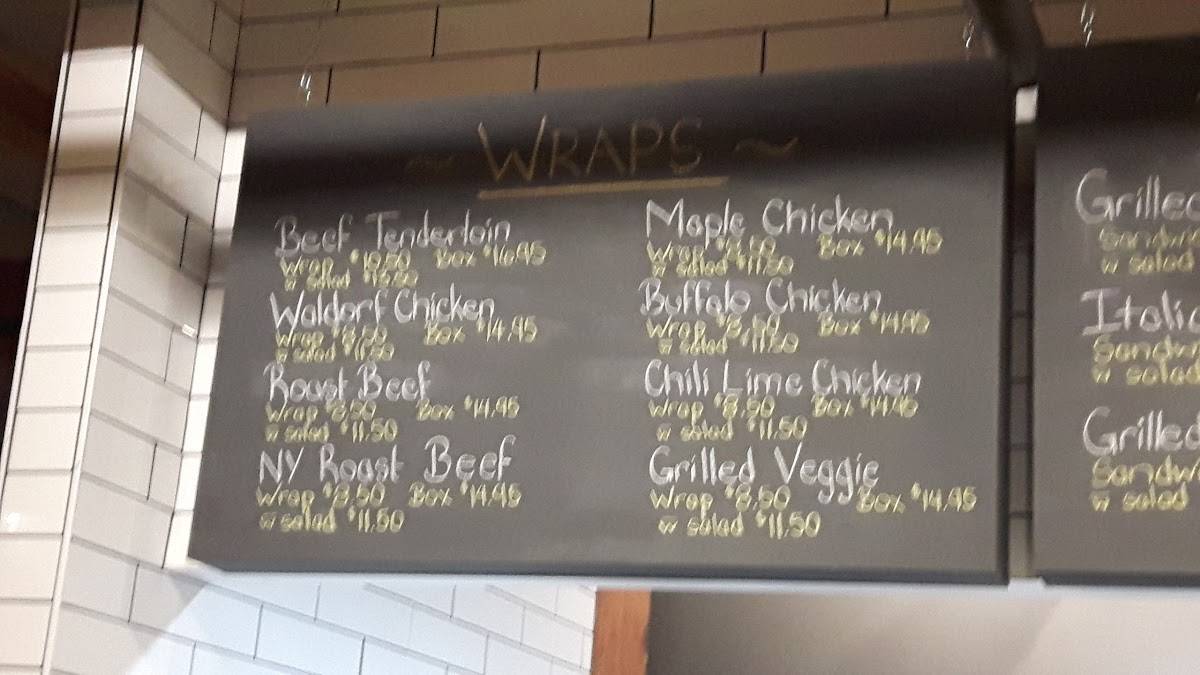 ~ WRAPS ~
Beef Tenderloin
Wrap $10.50 Box $16.95
w salad $13.50
Waldorf Chicken
Wrap $8.50 Box $14.95
w salad $11.50
Roast Beef
Wrap $8.50 Box $14.95
w salad $11.50
NY Roast Beef
Wrap $8.50 Box $14.95
w salad $11.50
Maple Chicken
Wrap $8.50 Box $14.95
w salad $11.50
Buffalo Chicken
Wrap $8.50 Box $14.95
w salad $11.50
Chili Lime Chicken
Wrap $8.50 Box $14.95
w salad $11.50
Grilled Veggie
Wrap $8.50 Box $14.95
w salad $11.50
Grilled
w salad
Itali
Sandw
w salad
Grilled
Sandw
w salad